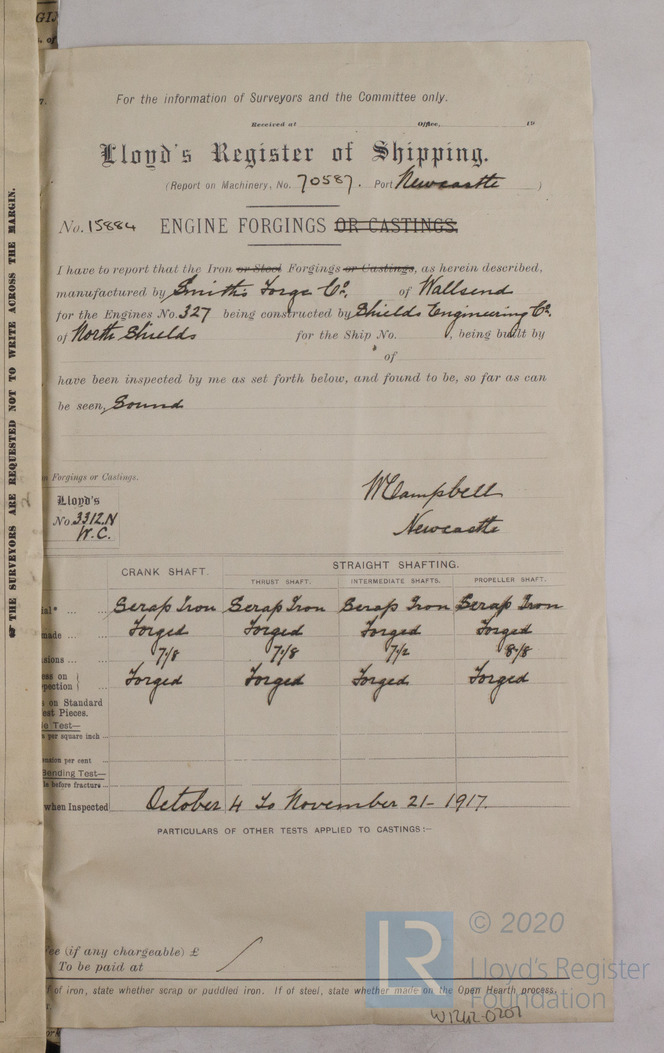 For the information of Surveyors and the Committee only.
Received at Office, 19
Lloyd's Register of Shipping.
(Report on Machinery, No. 70587. Port Newcastle )
No. 15884 ENGINE FORGINGS OR CASTINGS.
I have to report that the Iron or Steel Forgings or Castings, as herein described,
manufactured by Smiths Forge Co., of Wallsend
for the Engines No. 327 being constructed by Shields Engineering Co.
of North Shields for the Ship No. , being built by
of
have been inspected by me as set forth below, and found to be, so far as can
be seen, Sound
Forgings or Castings.
Lloyd's
No. 3312.N
W.C.
W Campbell
Newcastle
CRANK SHAFT. STRAIGHT SHAFTING.
THRUST SHAFT. INTERMEDIATE SHAFTS. PROPELLER SHAFT.
ial* ... ... Scrap Iron Scrap Iron Scrap Iron Scrap Iron
made ... ... Forged Forged Forged Forged
sions ... ... 7 1/8 7 1/8 7 1/2 8 1/8
ess on } ... Forged Forged Forged Forged
pection }
s on Standard
est Pieces.
le Test—
s per square inch ...
ension per cent ...
Bending Test—
le before fracture ...
when Inspected October 4 to November 21- 1917.
PARTICULARS OF OTHER TESTS APPLIED TO CASTINGS:—
Fee (if any chargeable) £ /
To be paid at
f of iron, state whether scrap or puddled iron. If of steel, state whether made on the Open Hearth process,
W1242-0207
THE SURVEYORS ARE REQUESTED NOT TO WRITE ACROSS THE MARGIN.
LR © 2020
Lloyd's Register
Foundation